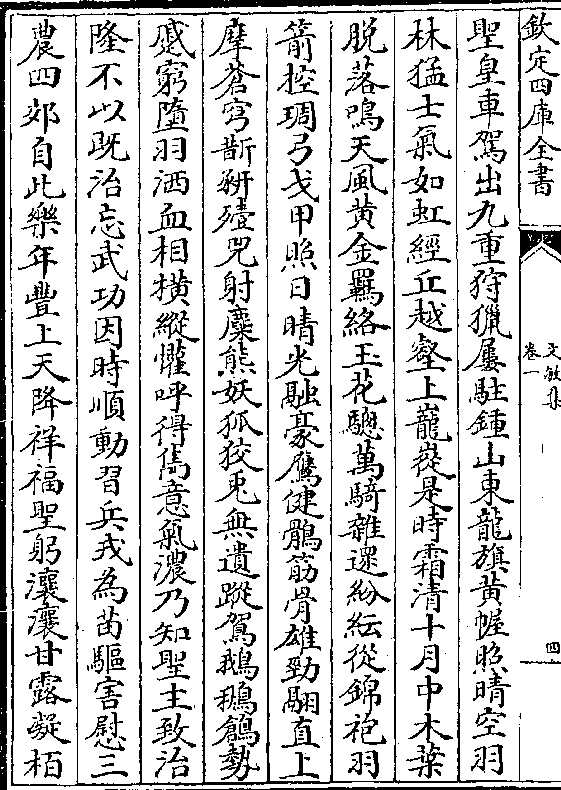 欽定四庫全書
文敏集
卷一
四
聖皇車駕出九重狩獵屢駐鍾山東龍旗黄幄照晴空羽
林猛士氣如虹經丘越壑上巃嵸是時霜清十月中木葉
脱落鳴天風黄金羈絡玉花驄萬騎雜遝紛紜從錦袍羽
箭控琱弓戈甲照日晴光融豪鷹健鶻筋骨雄勁翮直上
摩蒼穹斮豜殪兕射麋熊妖狐狡兎無遺蹤鴐鵝鶬勢
戚窮墮羽洒血相横縱懽呼得雋意氣濃乃知聖主致治
隆不以既治忘武功因時順動習兵戎為苗驅害慰三
農四郊自此樂年豐上天降祥福聖躬瀼瀼甘露凝栢